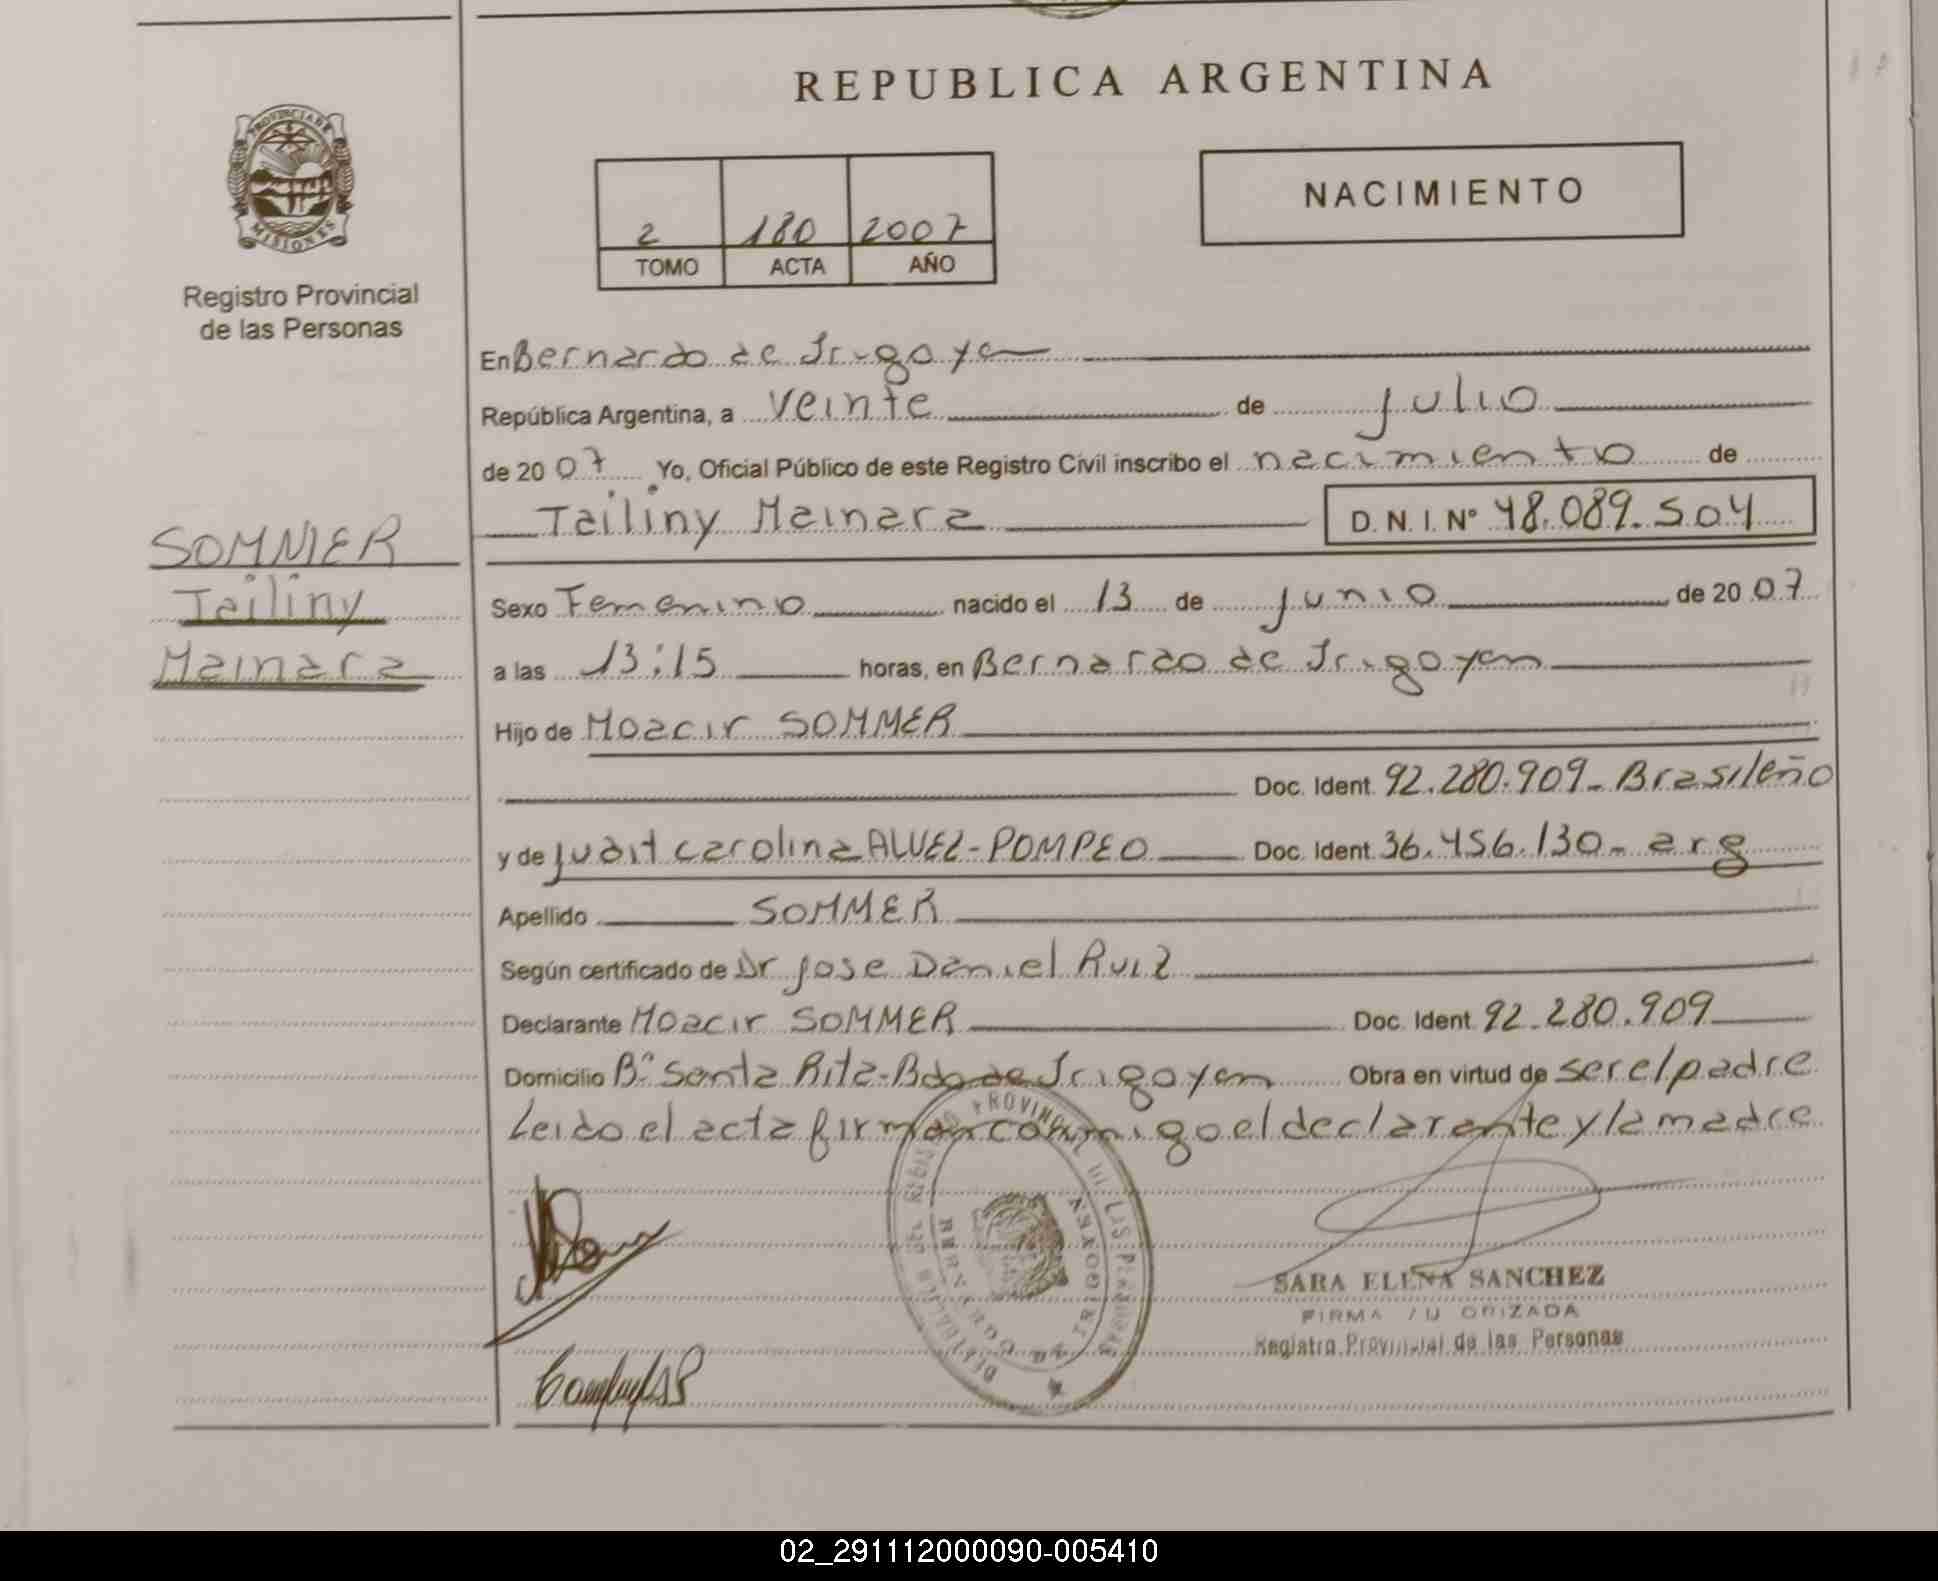 REPUBLICA ARGENTINA
PROVINCIA DE
MISIONES
Registro Provincial
de las Personas
NACIMIENTO
2 180 2007
TOMO ACTA AÑO
En Bernardo de Irigoyen
República Argentina, a veinte de julio
de 20 07 Yo, Oficial Público de este Registro Civil inscribo el nacimiento de
Tailiny Mainara D. N. I. Nº 48.089.504
SOMMER
Tailiny
Mainara
Sexo Femenino nacido el 13 de junio de 20 07
a las 13:15 horas, en Bernardo de Irigoyen
Hijo de Moacir SOMMER
Doc. Ident. 92.280.909- Brasileño
y de Judit Carolina ALVEZ-POMPEO Doc. Ident. 36.456.130- arg
Apellido SOMMER
Según certificado de Dr Jose Daniel Ruiz
Declarante Moacir SOMMER Doc. Ident. 92.280.909
Domicilio Bº Santa Rita-Bdo de Irigoyen Obra en virtud de ser el padre
Leido el acta firman conmigo el declarante y la madre
SARA ELENA SANCHEZ
FIRMA AU ORIZADA
Registro Provincial de las Personas
02_291112000090-005410